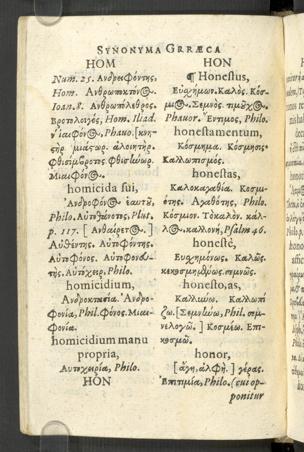 SYNONYMA GRRÆCA
HOM
Num. 25. Ἀνδρειφόντης,
Hom. Ἀνθρωποκτόν@.
Ioan. 8. Ἀνθρωπόλεθρος.
Βροτολοιγός, Hom. Iliad.
Μιαιφόν@.
homicida sui,
Ἀνδροφόν@ ἑαυτῷ,
Philo. Αὐτοθάνατος, Plut.
p. 117. [ Ἀνθαίρετ@. ]
Αὐθέντης. Αὐτοφόντης.
Αὐτοφόνος. Αὐτοφονευ-
τής. Αὐτόχειρ, Philo.
homicidium,
Ἀνδροκτασία. Ἀνδρο-
φονία, Phil. Φόνος. Μιαι-
φονία.
homicidium manu
propria,
Αὐτοχειρία, Philo.
HON
HON
¶ Honestus,
Εὐσχήμων. Καλός. Κόσ-
μι@. Σεμνός. τιμοῦχ@.
Phauor. Ἔντιμος, Philo.
honestamentum,
Κόσμημα. Κόσμησις.
Καλλωπισμός.
honestas,
Καλοκαγαθία. Κοσμι-
ότης. Ἀγαθότης, Philo.
Κόσμιον. Τὸ καλὸν. κάλ-
λ@. καλλονή, Psalm 46.
honestè,
Εὐσχημόνως. Καλῶς.
κεκοσμημένως. σεμνῶς.
honesto, as,
Καλλύνω. Καλλωπί-
ζω. [Σεμνύνω, Phil. σεμ-
νολογῶ. ] Κοσμέω. Ἐπι-
κοσμῶ.
honor,
[ ἄγη, ἀλφή. ] γέρας.
Ἐπιτιμία, Philo. (cui op-
ponitur